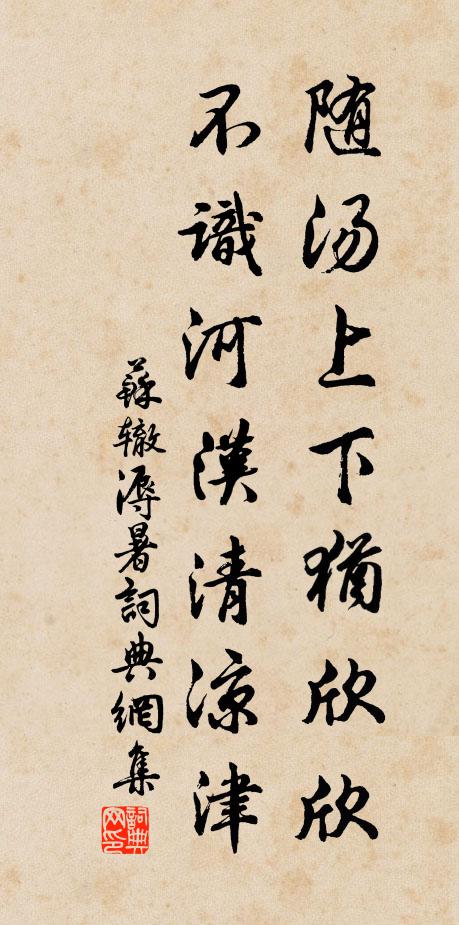 随汤上下犹欣欣
不識河漢清凉津
蘇辙溽暑詞典網集
詞典网印